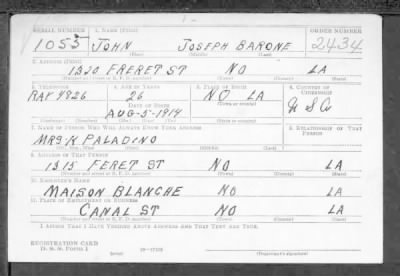 SERIAL NUMBER 1. NAME (Print) ORDER NUMBER
1055 JOHN JOSEPH BARONE 2434
(First) (Middle) (Last)
2. ADDRESS (Print)
1320 FRERET ST NO LA
(Number and street or R. F. D. number) (Town) (County) (State)
3. TELEPHONE 4. AGE IN YEARS 5. PLACE OF BIRTH 6. COUNTRY OF CITIZENSHIP
RAY 9826 26 NO LA U S A
DATE OF BIRTH (Town or county)
AUG-5-1914
(Mo.) (Day) (Yr.) (State or country)
7. NAME OF PERSON WHO WILL ALWAYS KNOW YOUR ADDRESS 8. RELATIONSHIP OF THAT PERSON
MRS K PALADINO
(Mr., Mrs., Miss) (First) (Middle) (Last)
9. ADDRESS OF THAT PERSON
1315 FERET ST NO LA
(Number and street or R. F. D. number) (Town) (County) (State)
10. EMPLOYER'S NAME
MAISON BLANCHE NO LA
11. PLACE OF EMPLOYMENT OR BUSINESS
CANAL ST NO LA
(Number and street or R. F. D. number) (Town) (County) (State)
I AFFIRM THAT I HAVE VERIFIED ABOVE ANSWERS AND THAT THEY ARE TRUE.
REGISTRATION CARD
D. S. S. FORM 1 (over) 16-17105